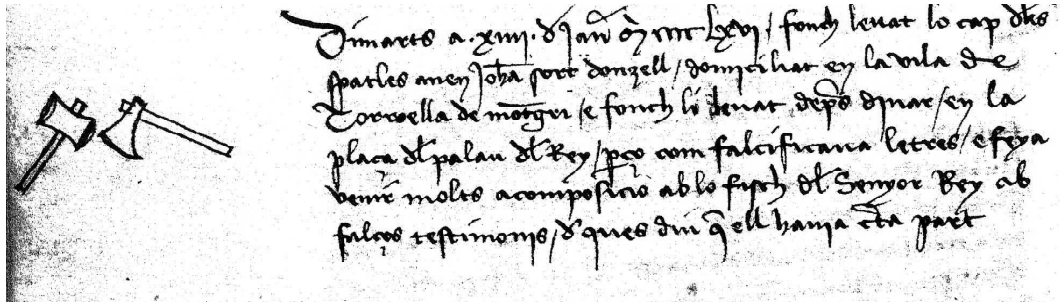 Dimarts a .xiiii. d jan̄ m cccc lxvi / fonch levat lo cap d les
spatles an en Joha sort donzell / domiciliat en la vila de
Torroella de mo͞tgri / e fonch li levat deps dinar / en la
plaça dl palau dl Rey / p ço com falcificava letres / e feya
venir molts a composicio ab lo fisch dl Senyor Rey ab
falços testimonis / d ques diu q̄ ell havia cta part